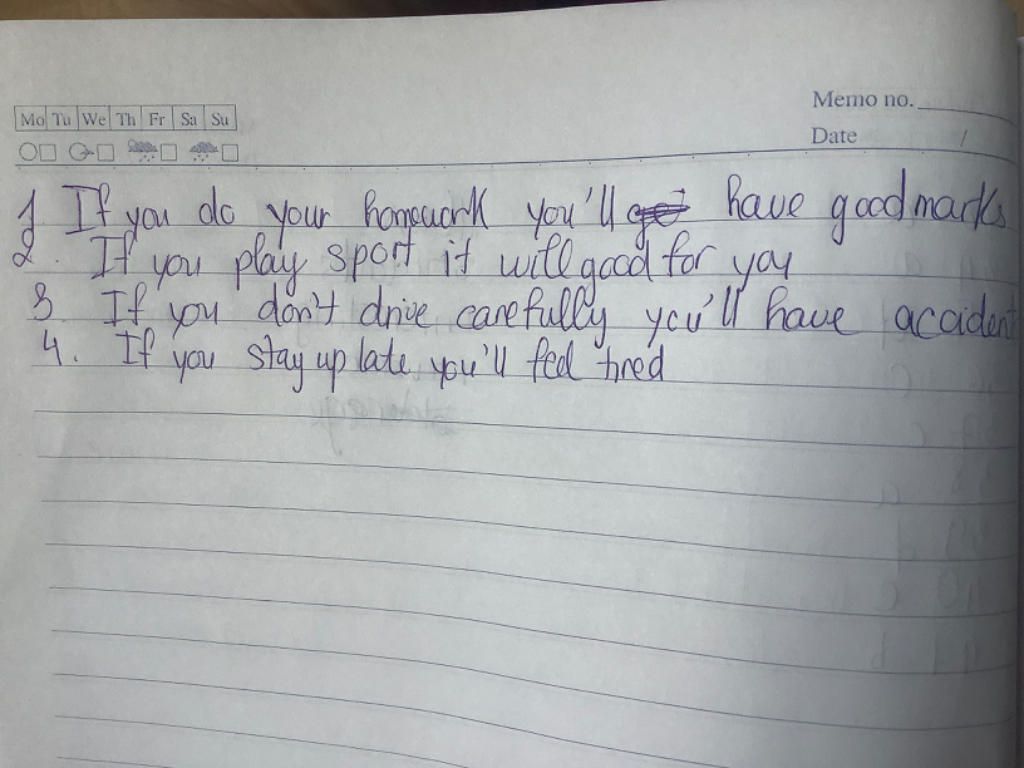 Memo no.
Mo Tu We Th Fr Sa Su
Date /
1 If you do your homework you'll have good marks
2. If you play sport it will good for you
3 If you don't drive carefully you'll have accident
4. If you stay up late you'll feel tired